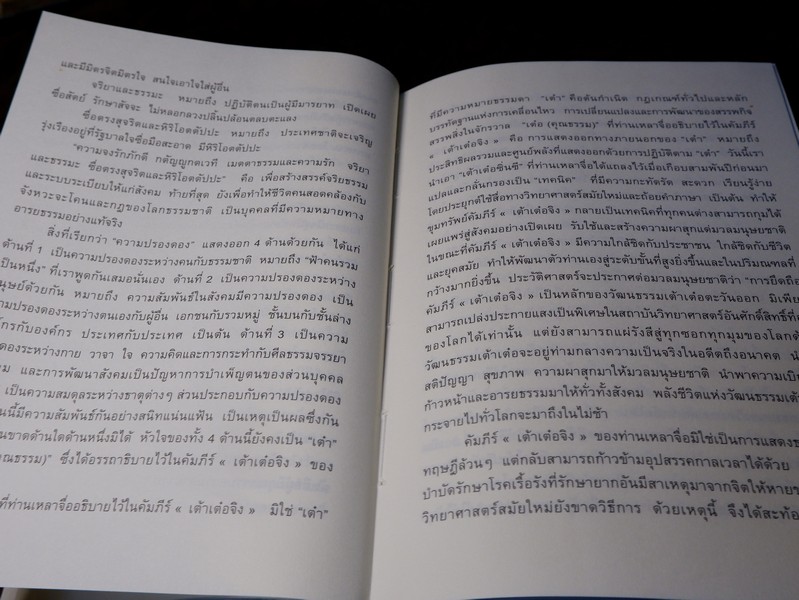 และมีมิตรจิตมิตรใจ สนใจเอาใจใส่ผู้อื่น
จริยาและธรรมะ หมายถึง ปฏิบัติตนเป็นผู้มีมารยาท เปิดเผย
ซื่อสัตย์ รักษาสัจจะ ไม่หลอกลวงปลิ้นปล้อนตลบตะแลง
ซื่อตรงสุจริตและหิริโอตตัปปะ หมายถึง ประเทศชาติจะเจริญ
รุ่งเรืองอยู่ที่รัฐบาลใจซื่อมือสะอาด มีหิริโอตตัปปะ
"ความจงรักภักดี กตัญญูกตเวที เมตตาธรรมและความรัก จริยา
และธรรมะ ซื่อตรงสุจริตและหิริโอตตัปปะ" คือ เพื่อสร้างสรรค์จริยธรรม
และระบบระเบียบให้แก่สังคม ท้ายที่สุด ยังเพื่อทำให้ชีวิตคนสอดคล้องกับ
จังหวะจะโคนและกฎของโลกธรรมชาติ เป็นบุคคลที่มีความหมายทาง
อารยธรรมอย่างแท้จริง
สิ่งที่เรียกว่า "ความปรองดอง" แสดงออก 4 ด้านด้วยกัน ได้แก่
ด้านที่ 1 เป็นความปรองดองระหว่างคนกับธรรมชาติ หมายถึง "ฟ้าคนรวม
เป็นหนึ่ง" ที่เราพูดกันเสมอนั่นเอง ด้านที่ 2 เป็นความปรองดองระหว่าง
นุษย์ด้วยกัน หมายถึง ความสัมพันธ์ในสังคมมีความปรองดอง เป็น
วามปรองดองระหว่างตนเองกับผู้อื่น เอกชนกับรวมหมู่ ชั้นบนกับชั้นล่าง
ค์กรกับองค์กร ประเทศกับประเทศ เป็นต้น ด้านที่ 3 เป็นความ
ดองระหว่างกาย วาจา ใจ ความคิดและการกระทำกับศีลธรรมจรรยา
ม และการพัฒนาสังคมเป็นปัญหาการบำเพ็ญตนของส่วนบุคคล
เป็นความสมดุลระหว่างธาตุต่างๆ ส่วนประกอบกับความปรองดอง
นนี้มีความสัมพันธ์กันอย่างสนิทแน่นแฟ้น เป็นเหตุเป็นผลซึ่งกัน
นขาดด้านใดด้านหนึ่งมิได้ หัวใจของทั้ง 4 ด้านนี้ยังคงเป็น "เต๋า"
คุณธรรม)" ซึ่งได้อรรถาธิบายไว้ในคัมภีร์ « เต้าเต๋อจิง » ของ
ที่ท่านเหลาจื่ออธิบายไว้ในคัมภีร์ « เต้าเต๋อจิง » มิใช่ "เต๋า"
ที่มีความหมายธรรมดา "เต๋า" คือต้นกำเนิด กฎเกณฑ์ทั่วไปและหลัก
บรรทัดฐานแห่งการเคลื่อนไหว การเปลี่ยนแปลงและการพัฒนาของสรรพกิจ
สรรพสิ่งในจักรวาล "เต๋อ (คุณธรรม)" ที่ท่านเหลาจื่ออธิบายไว้ในคัมภีร์
« เต้าเต๋อจิง » คือ การแสดงออกทางภายนอกของ "เต๋า" หมายถึง
ประสิทธิผลรวมและศูนย์พลังที่แสดงออกด้วยการปฏิบัติตาม "เต๋า" วันนี้เรา
นำเอา "เต้าเต๋อซิ่นซี" ที่ท่านเหลาจื่อได้แถลงไว้เมื่อเกือบสามพันปีก่อนมา
แปลและกลั่นกรองเป็น "เทคนิค" ที่มีความกะทัดรัด สะดวก เรียนรู้ง่าย
โดยประยุกต์ใช้สื่อทางวิทยาศาสตร์สมัยใหม่และถ้อยคำภาษา เป็นต้น ทำให้
ขุมทรัพย์คัมภีร์ « เต้าเต๋อจิง » กลายเป็นเทคนิคที่ทุกคนต่างสามารถกุมได้
เผยแพร่สู่สังคมอย่างเปิดเผย รับใช้และสร้างความผาสุกแด่มวลมนุษยชาติ
ในขณะที่คัมภีร์ « เต้าเต๋อจิง » มีความใกล้ชิดกับประชาชน ใกล้ชิดกับชีวิต
และยุคสมัย ทำให้พัฒนาตัวท่านเองสู่ระดับขั้นที่สูงยิ่งขึ้นและในปริมณฑลที่
กว้างมากยิ่งขึ้น ประวัติศาสตร์จะประกาศต่อมวลมนุษยชาติว่า "การยึดถือ
คัมภีร์ « เต้าเต๋อจิง » เป็นหลักของวัฒนธรรมเต้าเต๋อตะวันออก มิเพีย
สามารถเปล่งประกายแสงเป็นพิเศษในสถาบันวิทยาศาสตร์อันศักดิ์สิทธิ์ที่
ของโลกได้เท่านั้น แต่ยังสามารถแผ่รังสีสู่ทุกซอกทุกมุมของโลกด้
วัฒนธรรมเต้าเต๋อจะอยู่ท่ามกลางความเป็นจริงในอดีตถึงอนาคต นำ
สติปัญญา สุขภาพ ความผาสุกมาให้มวลมนุษยชาติ นำพาความเปี
ก้าวหน้าและอารยธรรมมาให้ทั่วทั้งสังคม พลังชีวิตแห่งวัฒนธรรมเต้
กระจายไปทั่วโลกจะมาถึงในไม่ช้า
คัมภีร์ « เต้าเต๋อจิง » ของท่านเหลาจื่อมิใช่เป็นการแสดงข
ทฤษฎีล้วนๆ แต่กลับสามารถก้าวข้ามอุปสรรคกาลเวลาได้ด้วย
บำบัดรักษาโรคเรื้อรังที่รักษายากอันมีสาเหตุมาจากจิตให้หายข
วิทยาศาสตร์สมัยใหม่ยังขาดวิธีการ ด้วยเหตุนี้ จึงได้สะท้อ